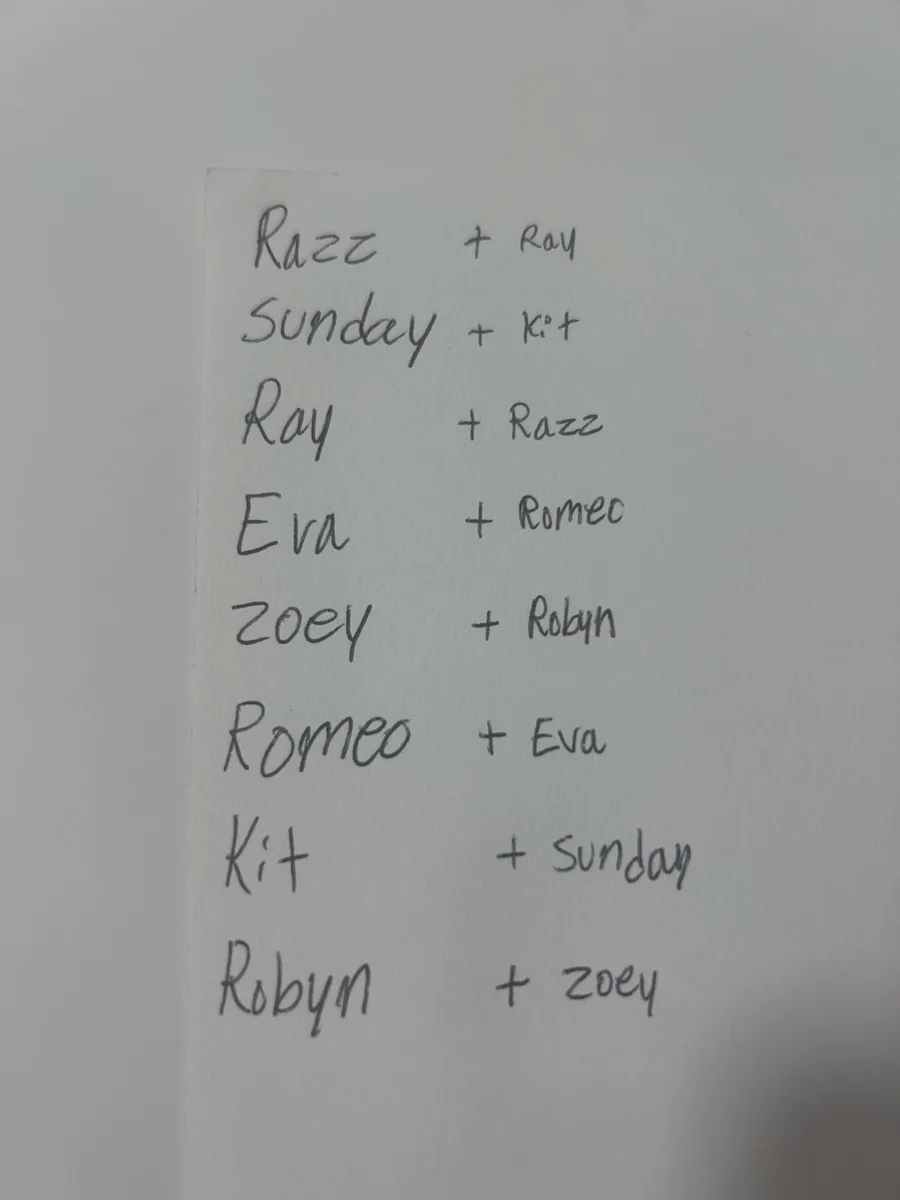 Razz + Ray
Sunday + Kit
Ray + Razz
Eva + Romeo
Zoey + Robyn
Romeo + Eva
Kit + Sunday
Robyn + Zoey